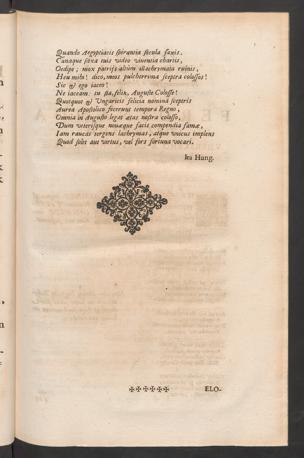 Quando Aegyptiacis spirantia secula saxis,
Cunaque saxa tuis video viventia chartis,
Oedipe; mox patriis altùm illachrymata ruinis,
Heu mihi! dico, meos pulcherrima sceptra colossos!
Sic & ego iacem!
Ne iaceam: tu sta, felix, Auguste Colosse!
Quotquot & Ungaricis felicia nomina sceptris
Aurea Apostolico fecerunt tempora Regno,
Omnia in Augusto legat aetas nostra colosso,
Dum veterisque novaeque facis compendia famae,
Iam raucas tergens lachrymas, atque unicus implens
Quod solet aut virtus, vel fors fortuna vocari.
ita Hung.
ELO-